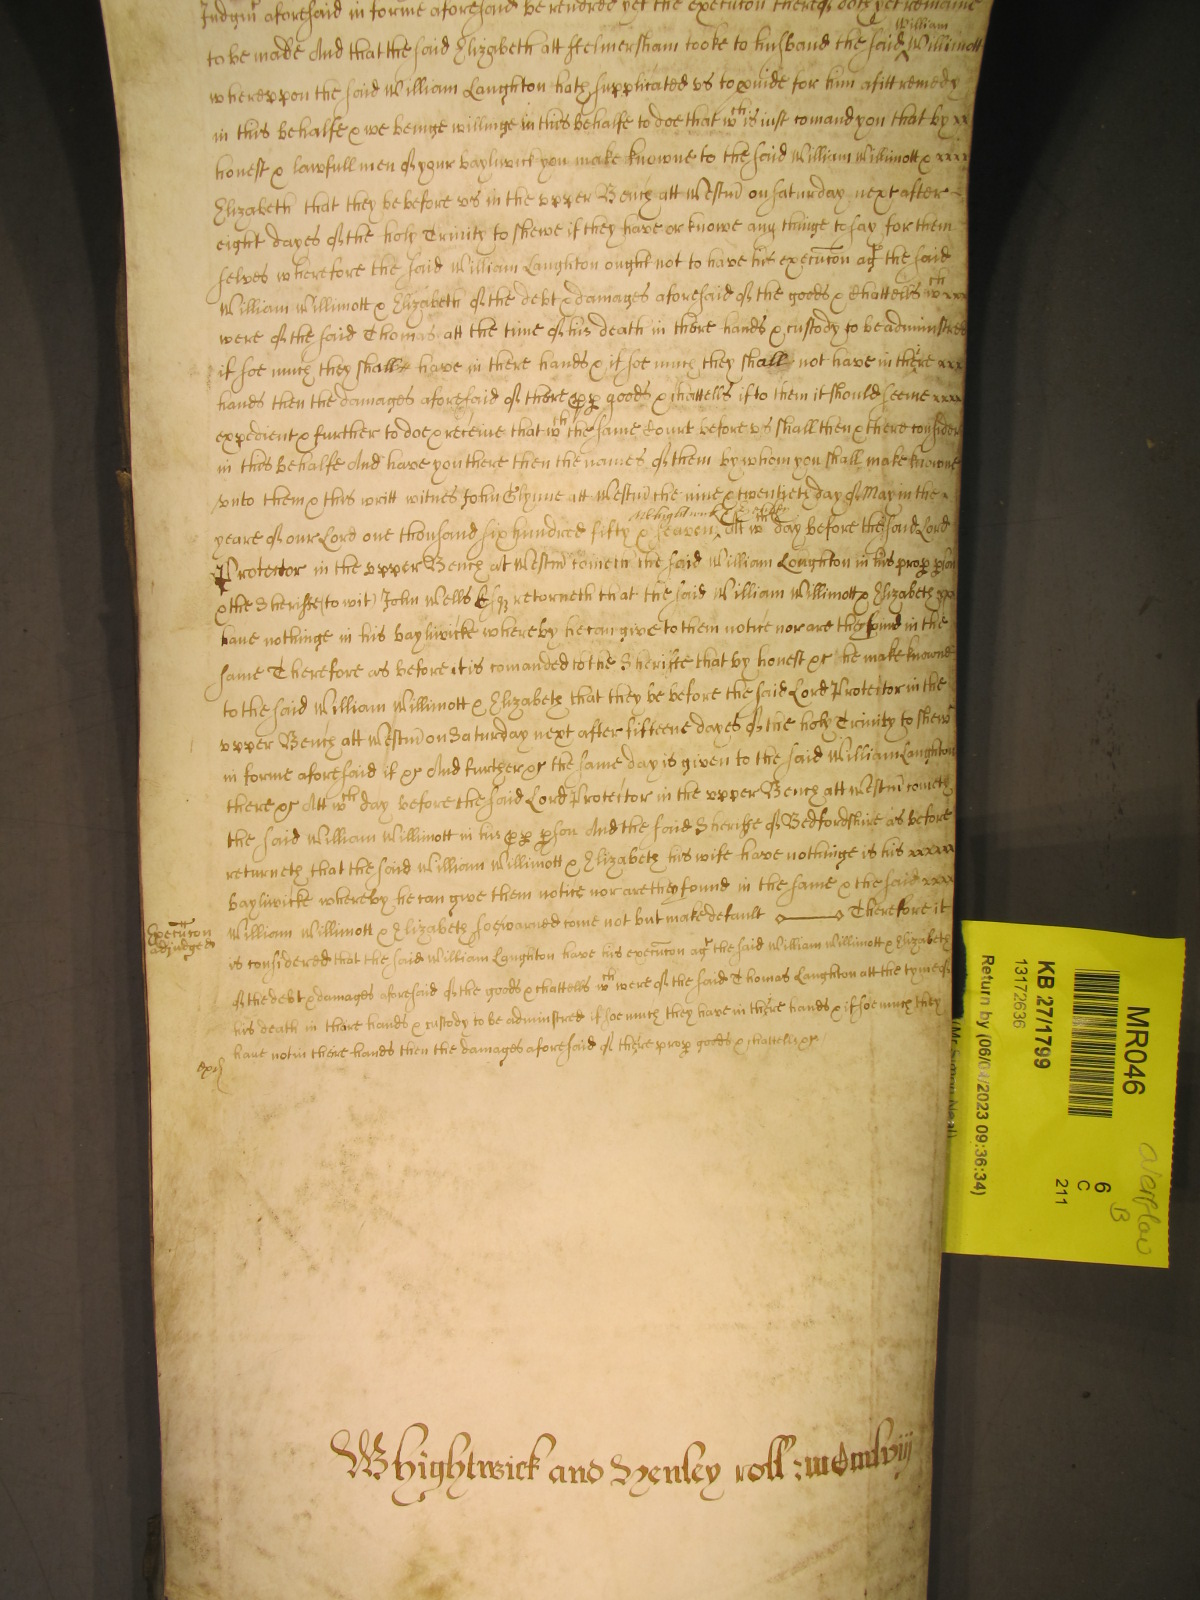 Judgmt aforesaid in forme aforesaid be rendred yet the execucon thereof doth yet remaine
to be made And that the said Elizabeth att Helmersham tooke to husband the said William Willimott
whereupon the said William Laughton hath supplicated us to pvide for him a fitt remedy
in this behalfe & we beinge willinge in this behalfe to doe that wch is iust comand you that by xx
honest & lawfull men of your bayliwick you make knowne to the said William Willimott & xxx
Elizabeth that they be before us in the upper Bench att Westm on Saturday next after
eight dayes of the holy Trinity to shewe if they have or knowe any thinge to say for them
selves wherefore the said William Laughton ought not to have his execucon agt the said
William Willimott & Elizabeth of the debt & damages aforesaid of the goods & Chattells wch xxx
were of the said Thomas att the time of his death in there hands & custody to be administred
if soe much they shall have in there hands & if soe much they shall not have in there xxx
hands then the damages aforesaid of there pp goods & chattells if to them it should seeme xxxx
expedient & further to doe & receive that wch the same Court before us shall then & there consider
in this behalfe And have you there then the names of them by whom you shall make knowne
unto them & this writt witnes John Glynne att Westm the nine & twentieth day of May in the
yeare of our Lord one thousand six hundred fifty & seaven Whightwick att wch day before the said Lord
Protector in the upper Bench at Westm cometh the said William Laughton in his propp pson
& the Sheriffe (to wit) John Wells Esqr retorneth that the said William Willimott & Elizabeth xxx
haue nothinge in his bayliwicke whereby he can give to them notice nor are they found in the
same Therefore as before it is comanded to the Sheriffe that by honest &c he make knowne
to the said William Willimott & Elizabeth that they be before the said Lord Protector in the
upper Bench att Westm on Saturday next after fifteene dayes of the holy Trinity to shew
in forme aforesaid if &c And further &c the same day is given to the said William Laughton
there &c Att wch day before the said Lord Protector in the upper Bench att Westm cometh
the said William Willimott in his pp pson And the said Sheriffe of Bedfordshire as before
returneth that the said William Willimott & Elizabeth his wife have nothinge is his xxxxx
bayliwicke whereby he can give them notice nor are they found in the same & the said xxxx
William Willimott & Elizabeth soe warned come not but make default Therefore it
Execucon
adjudged
is considered that the said William Laughton have his execucon agt the said William Willimott & Elizabeth
of the debt & damages aforesaid of the goods & chattells wch were of the said Thomas Laughton att the tyme of
his death in there hands & custody to be administred if soe much they have in there hands & if soe much they
haue not in there hands then the damages aforesaid of there propp goods & chattells &c
Whightwick and Henley roll: mdmlviij
MR046
KB 27/1799
13172636
Return by (06/04/2023 09:36:34)
6
C
211
overflow
B